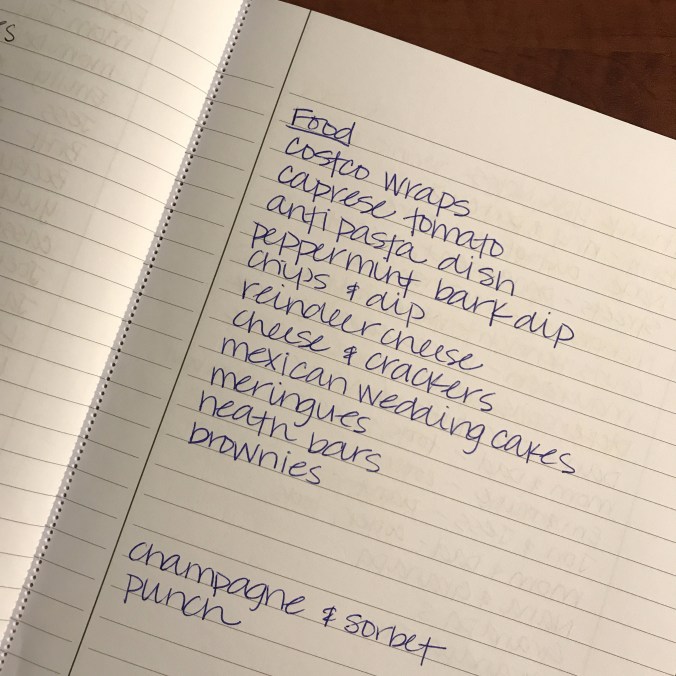 Food
costco wraps
caprese tomato
anti pasta dish
peppermint bark dip
chips & dip
reindeer cheese
cheese & crackers
mexican wedding cakes
meringues
heath bars
brownies
champagne & sorbet
punch